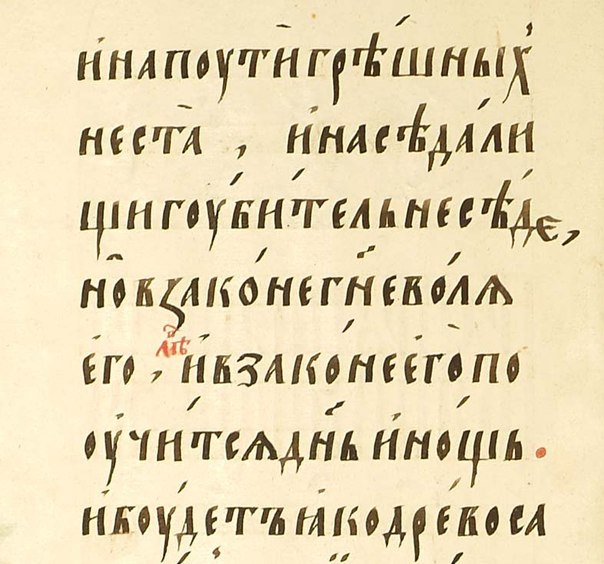 и҆напоути҆грѣ́шныⷯ
неста̀, и҆насѣда́ли
щи́гоуби́тельнесѣ́де,
но̑взако́негн҃ево́лѧ
є҆го̀, и҆взако́нее҆го̀по
оучи́тсѧдн҃ь и҆но́щь.
и҆боу́детъꙗ҆кодре́воса